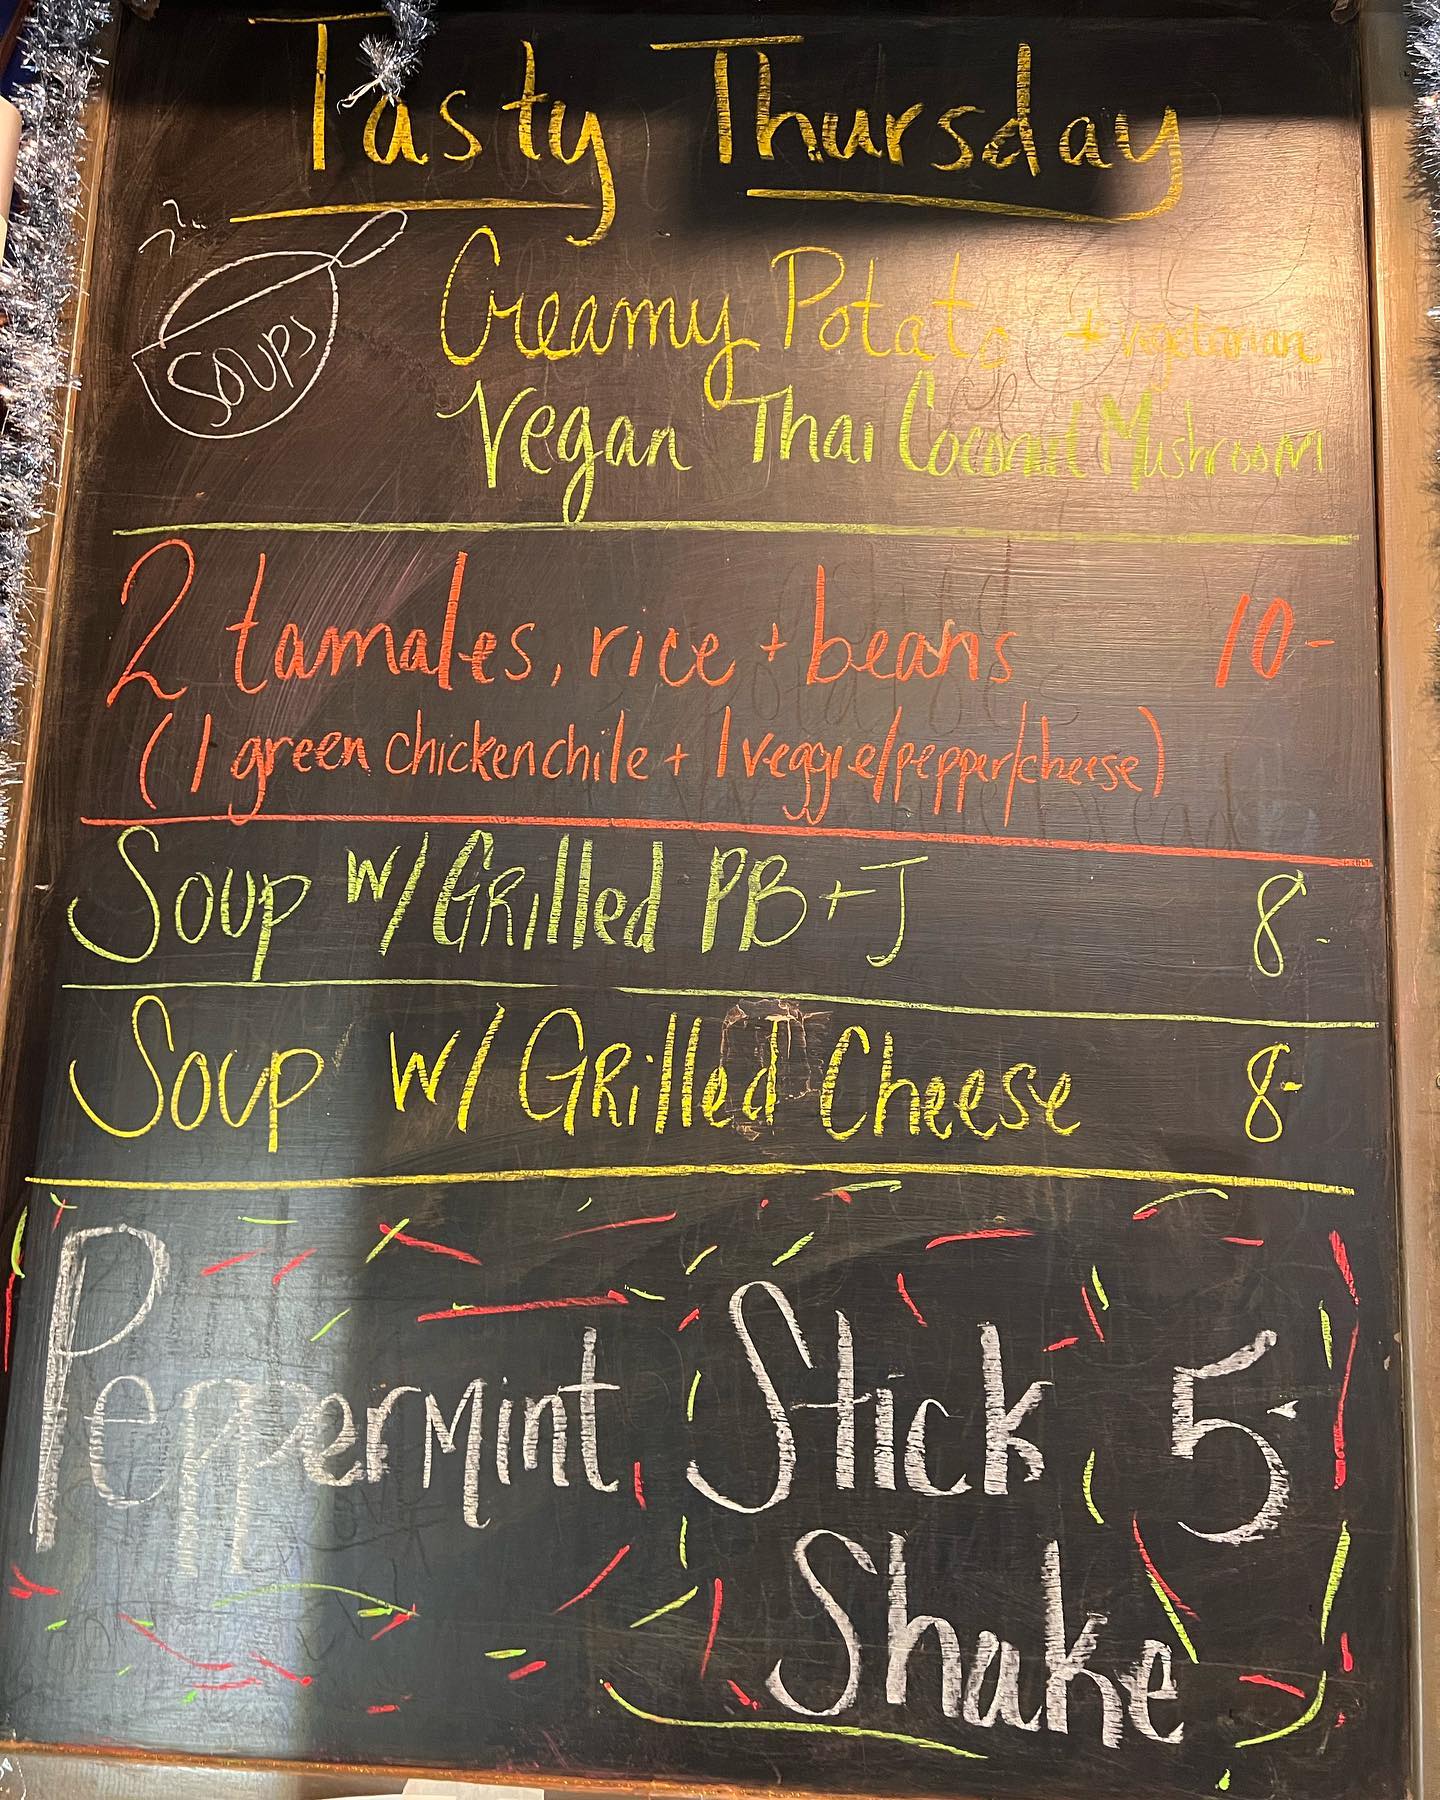 Tasty Thursday
SOUPS
Creamy Potato + vegetarian
Vegan Thai Coconut Mushroom
2 tamales, rice + beans 10-
(1 green chicken chile + 1 veggie/pepper/cheese)
Soup w/ Grilled PB+J 8-
Soup w/ Grilled Cheese 8-
Peppermint Stick 5-
Shake